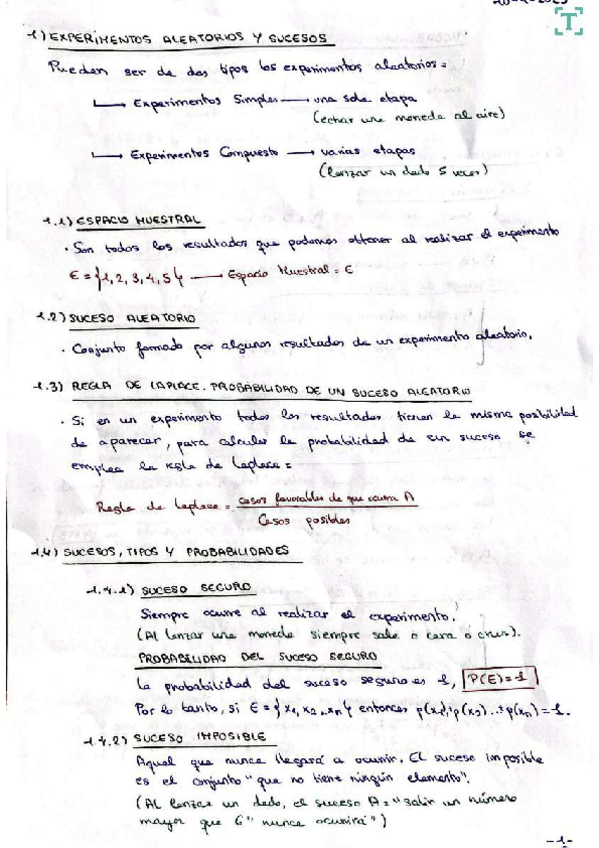 1) EXPERIMENTOS ALEATORIOS Y SUCESOS
Pueden ser de dos tipos los experimentos aleatorios:
Experimentos Simples → una sola etapa
(echar una moneda al aire)
Experimentos Compuesto → varias etapas
(lanzar un dado 5 veces)
1.1) ESPACIO MUESTRAL
· Son todos los resultados que podemos obtener al realizar el experimento
E = {1, 2, 3, 4, 5} → Espacio Muestral = E
1.2) SUCESO ALEATORIO
· Conjunto formado por algunos resultados de un experimento aleatorio.
1.3) REGLA DE LAPLACE. PROBABILIDAD DE UN SUCESO ALEATORIO
· Si en un experimento todos los resultados tienen la misma posibilidad
de aparecer, para calcular la probabilidad de un suceso se
emplea la regla de Laplace:
Regla de Laplace = casos favorables de que ocurra A
Casos posibles
1.4) SUCESOS, TIPOS Y PROBABILIDADES
1.4.1) SUCESO SEGURO
Siempre ocurre al realizar el experimento.
(Al lanzar una moneda siempre sale o cara o cruz).
PROBABILIDAD DEL SUCESO SEGURO
La probabilidad del suceso seguro es 1, P(E)=1
Por lo tanto, si E = {x1, x2 ..., xn} entonces p(x1)+p(x2)...+p(xn)=1.
1.4.2) SUCESO IMPOSIBLE
Aquel que nunca llegará a ocurrir. El suceso imposible
es el conjunto "que no tiene ningún elemento".
(Al lanzar un dado, el suceso A = "salir un número
mayor que 6" nunca ocurrirá")
-1-